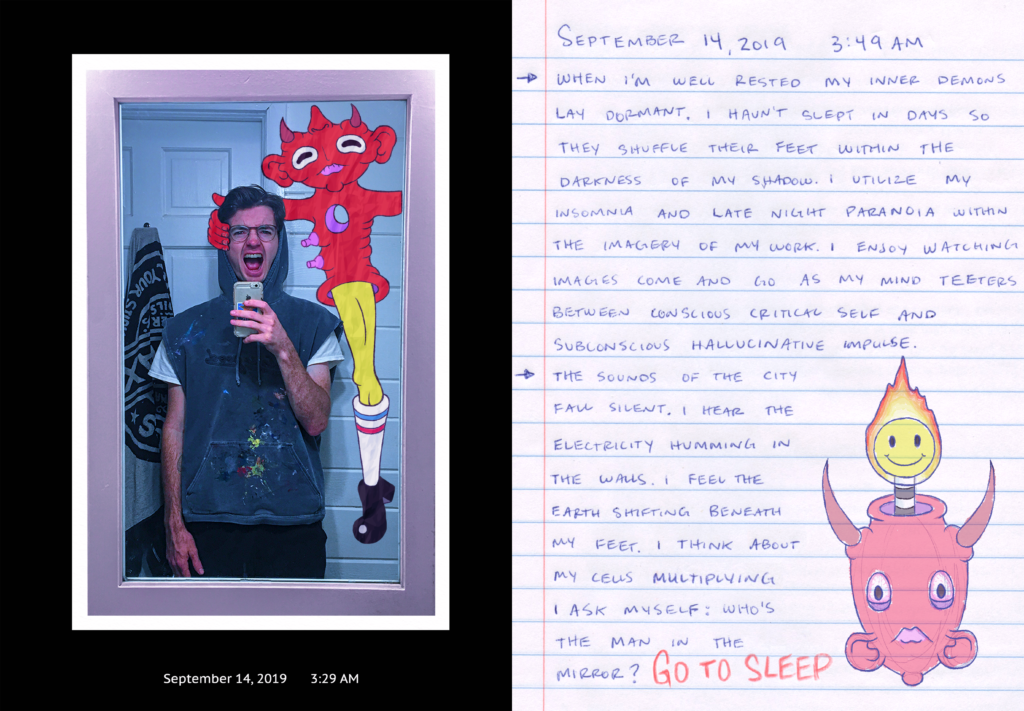 September 14, 2019 3:29 AM
SEPTEMBER 14, 2019 3:49 AM
→ WHEN I'M WELL RESTED MY INNER DEMONS
LAY DORMANT. I HAVN'T SLEPT IN DAYS SO
THEY SHUFFLE THEIR FEET WITHIN THE
DARKNESS OF MY SHADOW. I UTILIZE MY
INSOMNIA AND LATE NIGHT PARANOIA WITHIN
THE IMAGERY OF MY WORK. I ENJOY WATCHING
IMAGES COME AND GO AS MY MIND TEETERS
BETWEEN CONSCIOUS CRITICAL SELF AND
SUBCONSCIOUS HALLUCINATIVE IMPULSE.
→ THE SOUNDS OF THE CITY
FALL SILENT. I HEAR THE
ELECTRICITY HUMMING IN
THE WALLS. I FEEL THE
EARTH SHIFTING BENEATH
MY FEET. I THINK ABOUT
MY CELLS MULTIPLYING
I ASK MYSELF: WHO'S
THE MAN IN THE
MIRROR? GO TO SLEEP